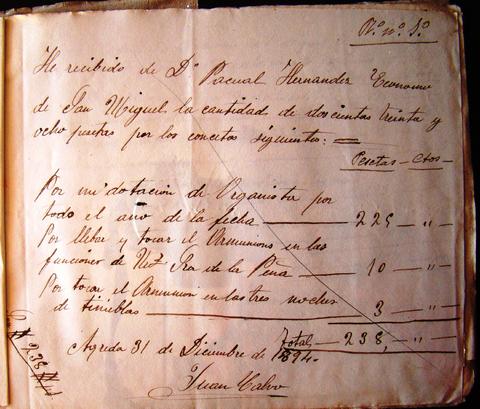 Rº. nº. 1º
He recibido de Dº Pacual Hernandez Economo
de San Miguel la cantidad de doscientas treinta y
ocho pesetas por los concetos siguientes: =
Pesetas – Ctos –
Por mi dotación de Organista por
todo el ano de la fecha — 225 – " –
Por llebar y tocar el Armuniun en las
funciones de Ntª Sra de la Peña — 10 – " –
Por tocar el Armuniun en las tres noches
de tinieblas — 3 – " –
Total – 238, – " –
Agreda 31 de Diciembre de 1894.
Juan Calvo
Son # 238 #